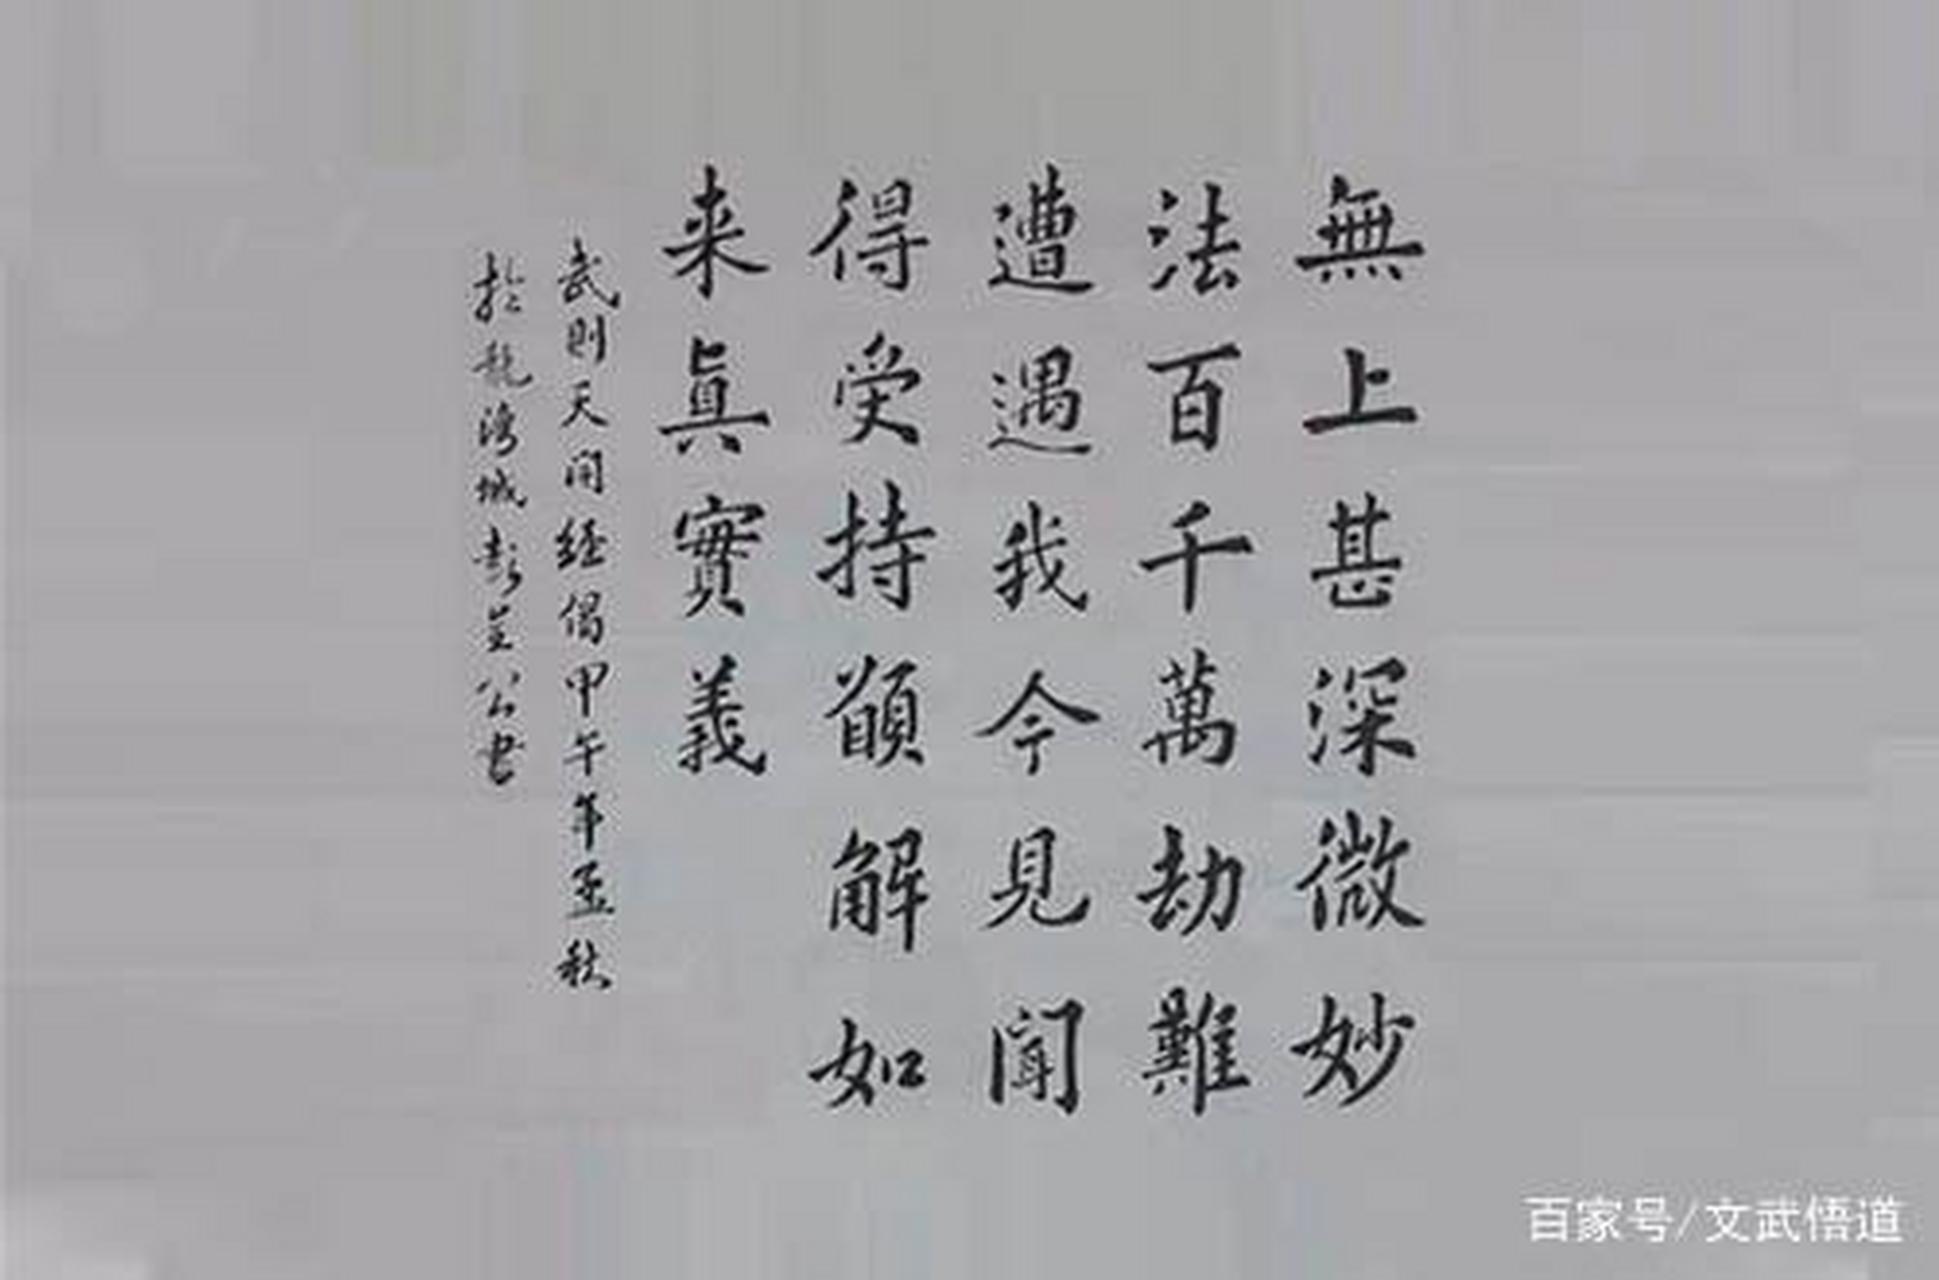 無上甚深微妙
法百千萬劫難
遭遇我今見聞
得受持願解如
来眞實義
武則天開經偈甲午年孟秋
於龍湾城彭公书
百家号/文武悟道